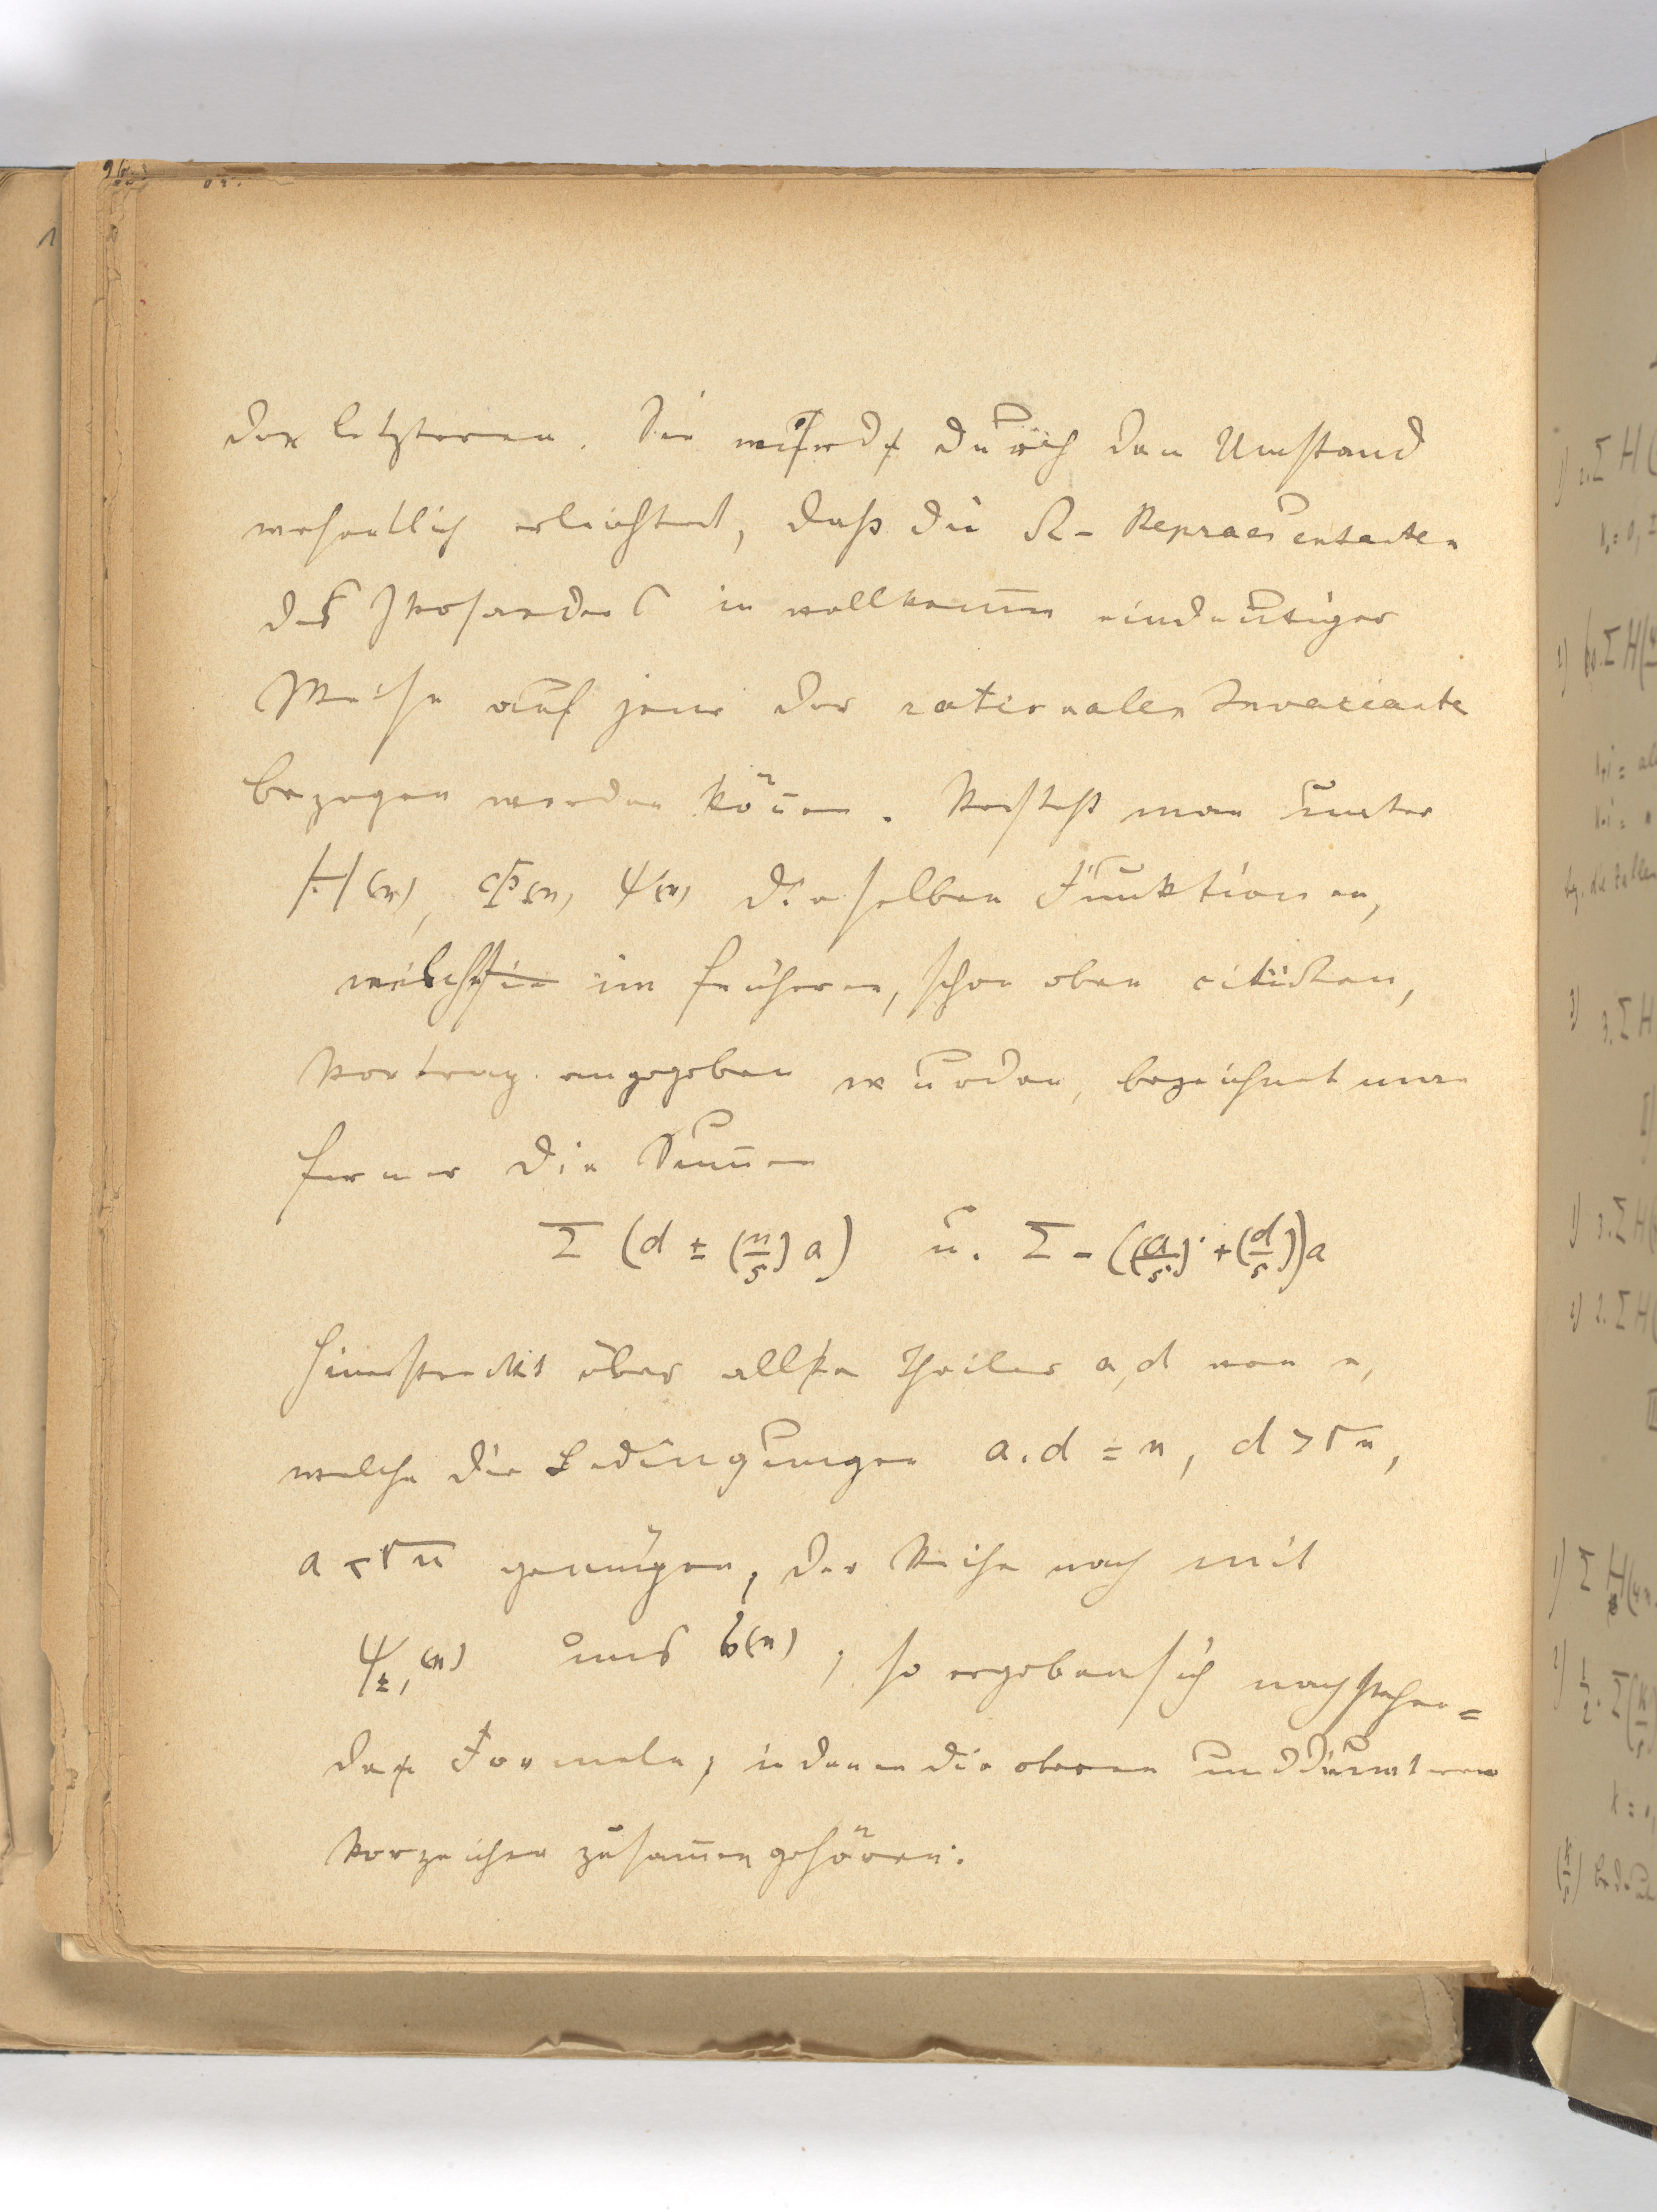 der letzteren. Sie wird durch den Umstand
wesentlich erleichtert, daß die Ω-Repraesentanten
des Ikosaeders in vollkom̅en eindeutiger
Weise auf jene der rationalen Invariante
bezogen werden kön̅en. Versteht man unter
H(n), Φ(n), Ψ(n) dieselben Funktionen,
welche im früheren, schon oben citirten,
Vortrag angegeben wurden, bezeichnet man
ferner die Sum̅en
Σ (d ± (n/5) a) u. Σ - ((a/5) + (d/5)) a
hinerstreckt über alle Theiler a, d von n,
welche die Bedingungen a.d = n, d > √n,
a < √n genügen, der Reihe nach mit
Ψ±,(n) und (n), so ergeben sich nachstehen=
de Formeln, in denen die oberen und unteren
Vorzeichen zusam̅engehören:
1) 2.Σ H(
2) Σ H(
3) 3.Σ H